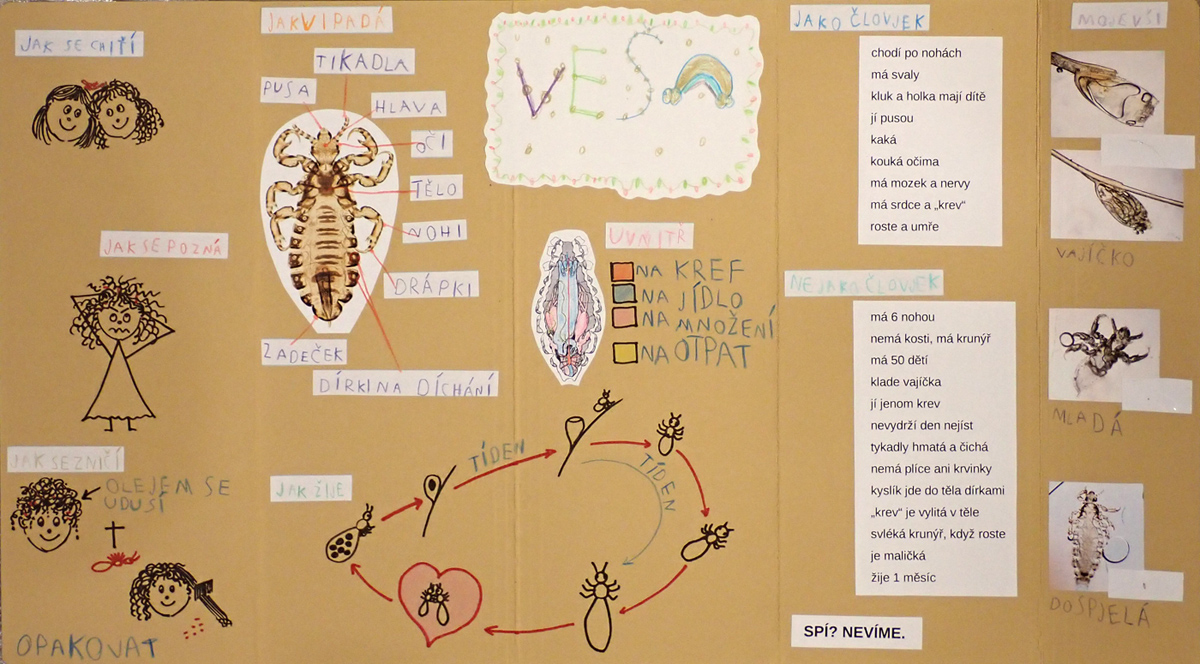 JAK SE CHIŤÍ
JAK SE POZNÁ
JAK SE ZNIČÍ
OLEJEM SE
UDUSÍ
OPAKOVAT
JAK VIPADÁ
TIKADLA
PUSA
HLAVA
OČI
TĚLO
NOHI
DRÁPKI
ZADEČEK
DÍRKI NA DÍCHÁNÍ
VEŠ
UVNITŘ
NA KREF
NA JÍDLO
NA MNOŽENÍ
NA OTPAT
JAK ŽIJE
TÍDEN
TÍDEN
JAKO ČLOVJEK
chodí po nohách
má svaly
kluk a holka mají dítě
jí pusou
kaká
kouká očima
má mozek a nervy
má srdce a „krev“
roste a umře
NEJAKO ČLOVJEK
má 6 nohou
nemá kosti, má krunýř
má 50 dětí
klade vajíčka
jí jenom krev
nevydrží den nejíst
tykadly hmatá a čichá
nemá plíce ani krvinky
kyslík jde do těla dírkami
„krev“ je vylitá v těle
svléká krunýř, když roste
je maličká
žije 1 měsíc
SPÍ? NEVÍME.
MOJE VŠI
VAJÍČKO
MLADÁ
DOSPJELÁ